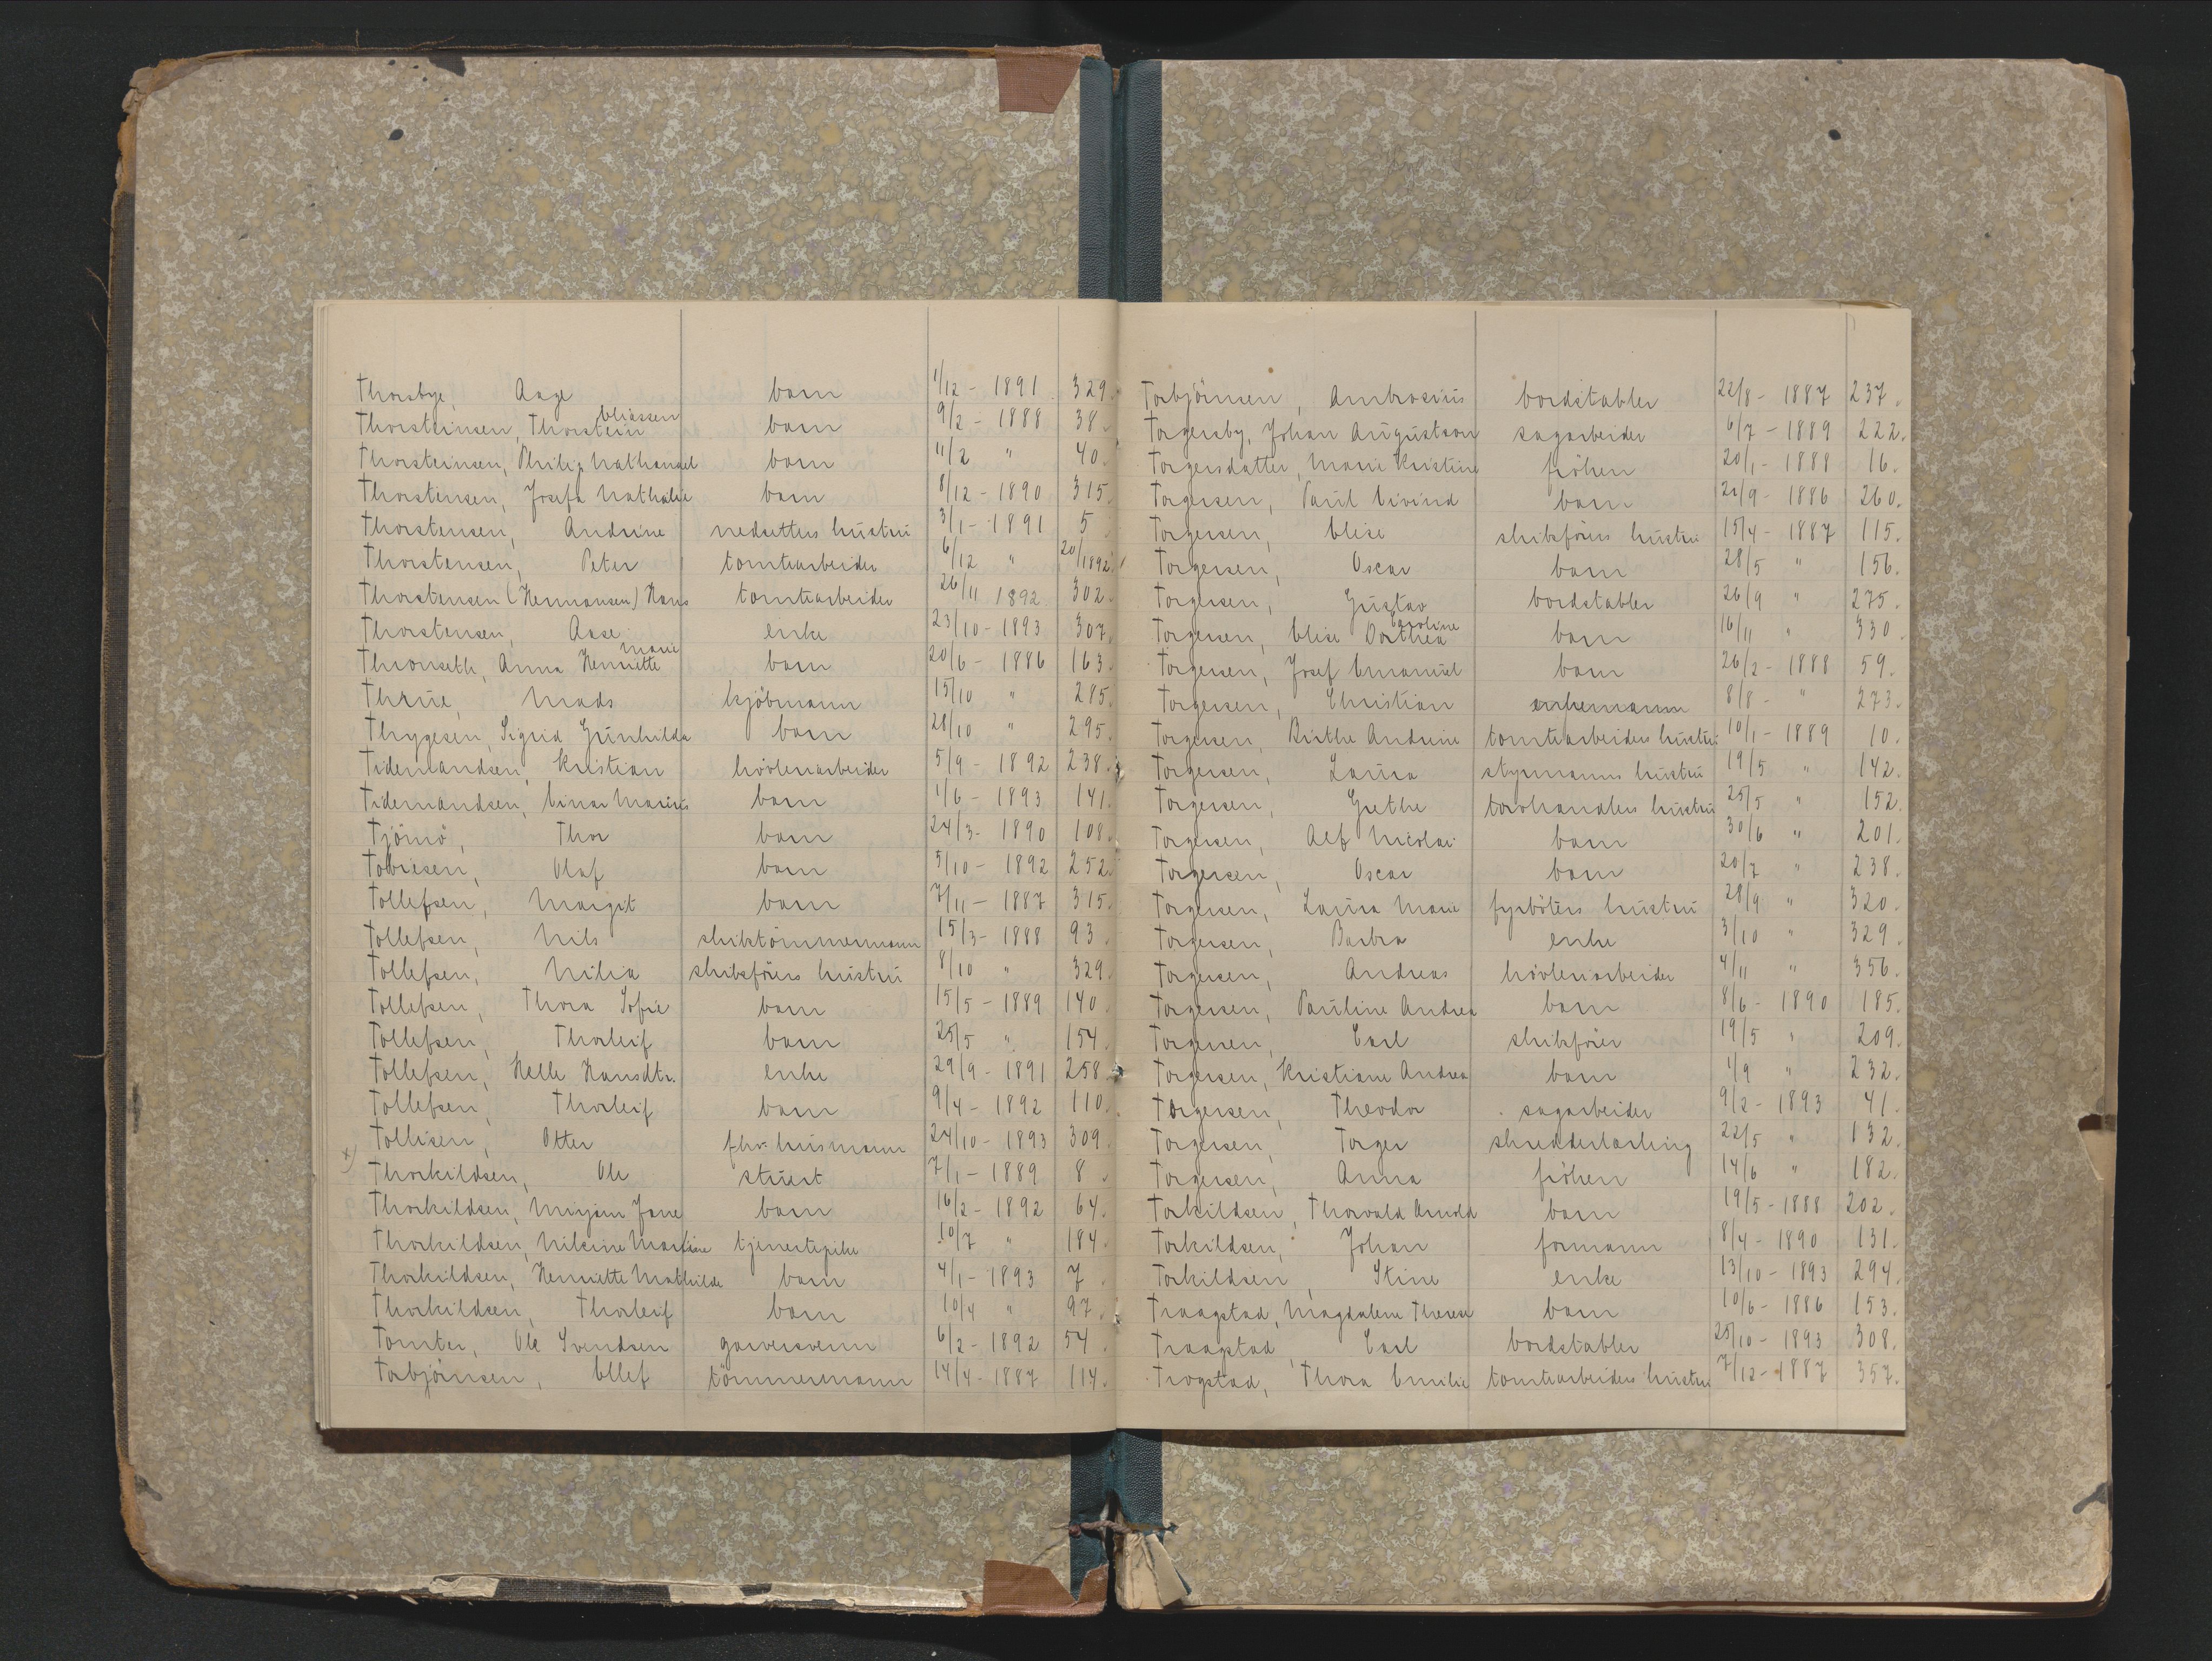 Thorsbye, Aage barn 1/12 - 1891 329.
Thorsteinsen, Thorstein Eliassen barn 9/2 - 1888 38.
Thorsteinsen, Philip Nathanael barn 11/2 " 40.
Thorstensen, Josefa Nathalie barn 8/12 - 1890 315.
Thorstensen, Andrine nedsetters hustru 3/1 - 1891 5
Thorstensen, Peter tomtearbeider 6/12 " 20/1892.
Thorstensen (Hermansen) Hans tomtearbeider 26/11 1892 302.
Thorstensen, Aase enke 23/10 - 1893 307.
Thronseth, Anna Henriette Marie barn 20/6 - 1886 163.
Thrue, Mads kjöbmann 15/10 " 285.
Thygesen, Sigrid Gunhilda barn 28/10 " 295.
Tidemandsen, Kristian hövleriarbeider 5/9 - 1892 238.
Tidemandsen, Einar Marius barn 1/6 - 1893 141.
Tjömö, Thor barn 24/3 - 1890 108.
Tobiesen, Olaf barn 5/10 - 1892 252.
Tollefsen, Margit barn 7/11 - 1887 315.
Tollefsen, Nils skibstömmermann 15/3 - 1888 93.
Tollefsen, Nilia skibsförers hustru 8/10 " 329.
Tollefsen, Thora Sofie barn 15/5 - 1889 140.
Tollefsen, Thorleif barn 25/5 " 154.
Tollefsen, Helle Hansdtr. enke 29/9 - 1891 258.
Tollefsen, Thorleif barn 9/4 - 1892 110.
Tollisen, Otter fhv. husmann 24/10 - 1893 309.
x) Thorkildsen, Ole stuert 7/1 - 1889 8.
Thorkildsen, Mirjam Jane barn 16/2 - 1892 64.
Thorkildsen, Nilsine Martine tjenestepike 10/7 " 184.
Thorkildsen, Henriette Mathilde barn 4/1 - 1893 7.
Thorkildsen, Thorleif barn 10/4 " 97.
Tomter, Ole Svendsen garversvenn 6/2 - 1892 54.
Torbjörnsen, Ellef tömmermann 14/4 - 1887 114.
Torbjörnsen, Ambrosius bordstabler 22/8 - 1887 237.
Torgersby, Johan Augustson sagarbeider 6/7 - 1889 222.
Torgersdatter, Marie Kristine fröken 20/1 - 1888 16.
Torgersen, Paul Eivind barn 21/9 - 1886 260.
Torgersen, Elise skibsförers hustru 15/4 - 1887 115.
Torgersen, Oscar barn 28/5 " 156.
Torgersen, Gustav bordstabler 26/9 " 275.
Torgersen, Elise Dorthea Caroline barn 16/11 " 330.
Torgersen, Josef Emanuel barn 26/2 - 1888 59.
Torgersen, Christian enkemann 8/8 - " 273.
Torgersen, Birthe Andrine tomtearbeiders hustru 10/1 - 1889 10.
Torgersen, Laura styrmanns hustru 19/5 " 142.
Torgersen, Grethe torvhandlers hustru 25/5 " 152.
Torgersen, Alf Nicolai barn 30/6 " 201.
Torgersen, Oscar barn 20/7 " 238.
Torgersen, Laura Marie fyrböters hustru 28/9 " 320.
Torgersen, Barbra enke 3/10 " 329.
Torgersen, Andreas hövleriarbeider 4/11 " 356.
Torgersen, Pauline Andrea barn 8/6 - 1890 185.
Torgersen, Carl skibsförer 19/5 " 209.
Torgersen, Kristiane Andrea barn 1/9 " 232.
Torgersen, Theodor sagarbeider 9/2 - 1893 41.
Torgersen, Torger skredderlærling 22/5 " 132.
Torgersen, Anna fröken 14/6 " 182.
Torkildsen, Thorvald Arnold barn 19/5 - 1888 202.
Torkildsen, Johan formann 8/4 - 1890 131.
Torkildsen, Stine enke 13/10 - 1893 294.
Traagstad, Magdalene Therese barn 10/6 - 1886 153.
Traagstad, Carl bordstabler 25/10 - 1893 308.
Trogstad, Thora Emilie tomtearbeiders hustru 7/12 - 1887 357.